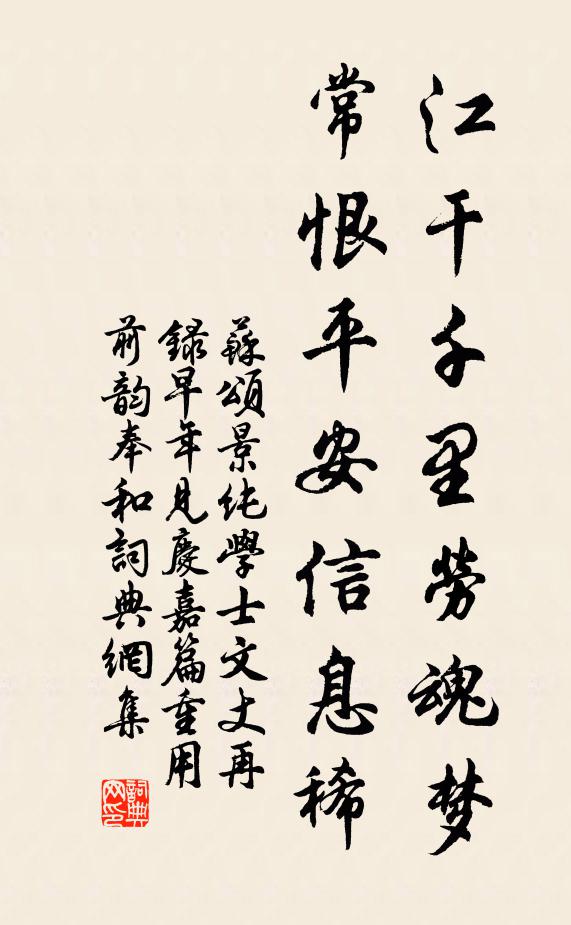 江干千里勞魂梦
常恨平安信息稀
蘇頌景純學士文丈再
録早年見慶嘉篇重用
前韵奉和詞典網集
詞典网印